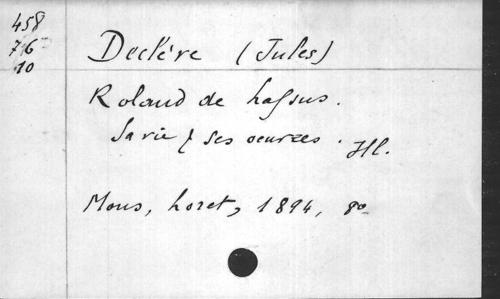 458
76
10
Declève (Jules)
Roland de Lassus.
Sa vie & ses oeuvres. Ill.
Mons, Loret, 1894, 8o